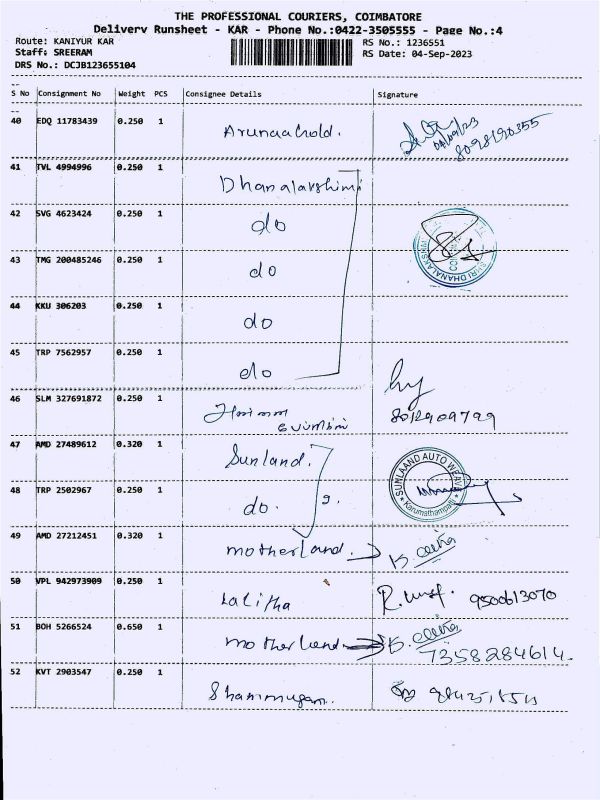 THE PROFESSIONAL COURIERS, COIMBATORE
Delivery Runsheet - KAR - Phone No.:0422-3505555 - Page No.:4
Route: KANIYUR KAR RS No.: 1236551
Staff: SREERAM RS Date: 04-Sep-2023
DRS No.: DCJB123655104
S No Consignment No Weight PCS Consignee Details Signature
40 EDQ 11783439 0.250 1
04/09/23
8098190355
41 TVL 4994996 0.250 1 Dhanalakshimi
42 SVG 4623424 0.250 1 do
SHRI DHANALAKSHMI
43 TMG 200485246 0.250 1 do
44 KKU 306203 0.250 1 do
45 TRP 7562957 0.250 1 do
46 SLM 327691872 0.250 1
8012909799
47 AMD 27489612 0.320 1 Sunland.
SUNLAAND AUTO WEAV
Karumathampatti
48 TRP 2502967 0.250 1 do.
49 AMD 27212451 0.320 1 motherland.
50 VPL 942973909 0.250 1 Lalitha 9500613070
51 BOH 5266524 0.650 1 motherland
7358284614.
52 KVT 2903547 0.250 1 Shanmugam.